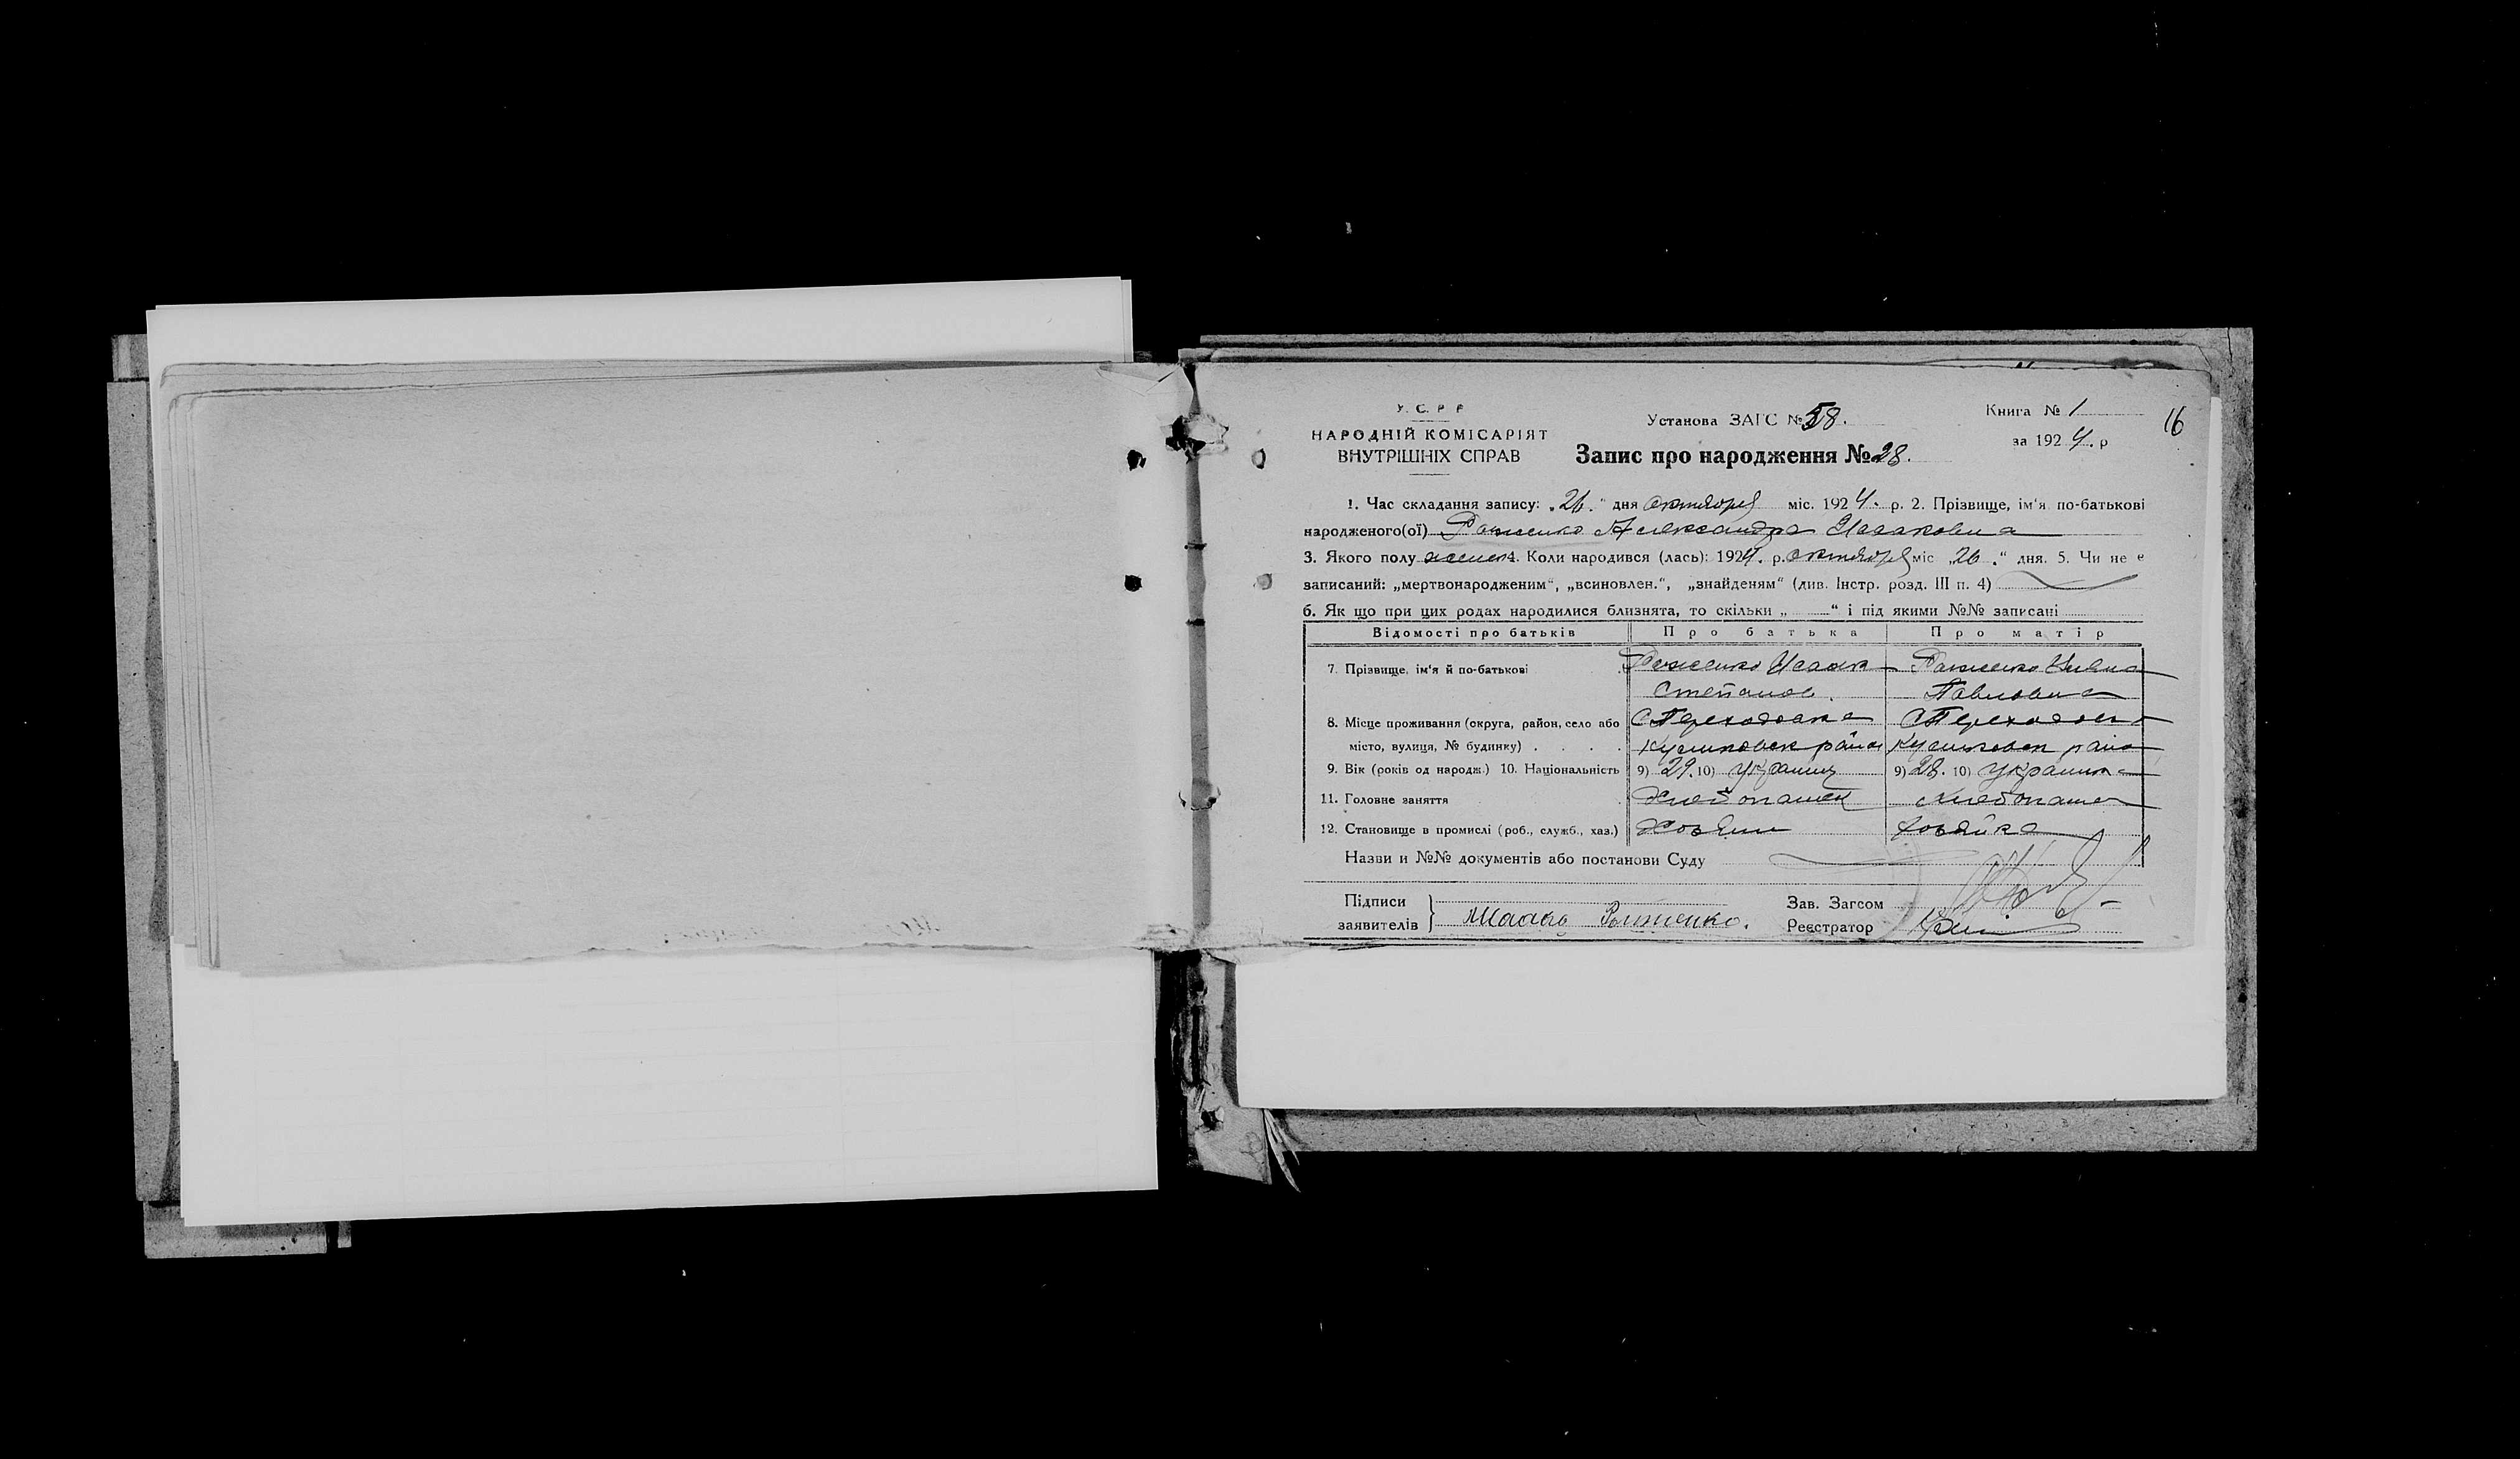 У. С. Р. Р.
НАРОДНІЙ КОМІСАРІЯТ
ВНУТРІШНІХ СПРАВ
Установа ЗАГС № 58.
Запис про народження № 28.
Книга № 1
за 1924. р
16
1. Час складання запису: „26.“ дня октября міс. 1924. р. 2. Прізвище, ім'я по-батькові
народженого(ої) Александра Исаковна
3. Якого полу женск 4. Коли народився (лась): 1924. р. октября міс „26.“ дня. 5. Чи не є
записаний: „мертвонародженим“, „всиновлен.“, „знайденям“ (див. Інстр. розд. III п. 4)
6. Як що при цих родах народилися близнята, то скільки „ “ і під якими №№ записані
Відомості про батьків Про батька Про матір
7. Прізвище, ім'я й по-батькові Исаак
Степанов. Павловна
8. Місце проживання (округа, район, село або С Переходовка С Переходовка
місто, вулиця, № будинку) . . . . район
9. Вік (років од народж.) 10. Національність 9) 29. 10) украинц 9) 28. 10) украинка
11. Головне заняття Хлебопашец хлебопаш
12. Становище в промислі (роб., служб., хаз.) Хозяин хозяйка
Назви и №№ документів або постанови Суду
Підписи
заявителів
Зав. Загсом
Реєстратор